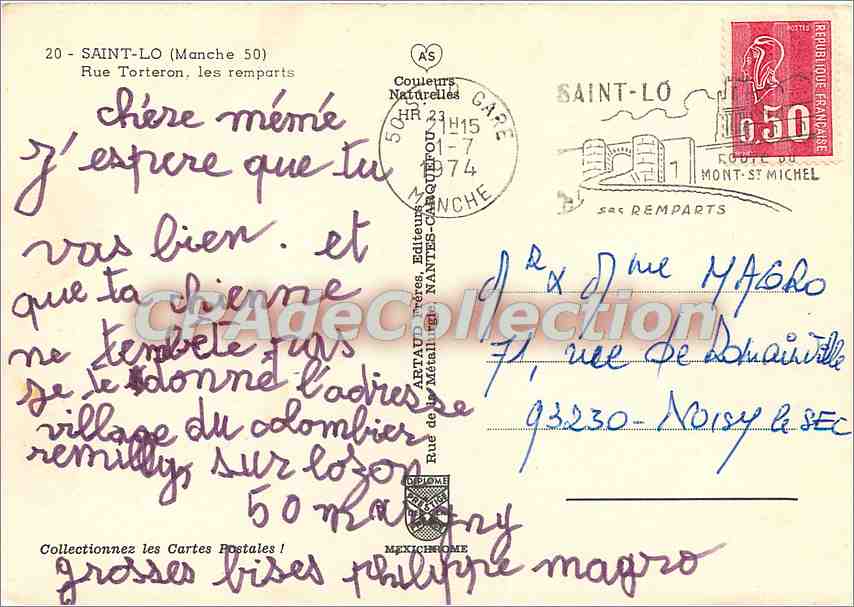 20 - SAINT-LO (Manche 50)
Rue Torteron, les remparts
chére mémé
J'espere que tu
vas bien. et
que ta chienne
ne tembete pas
je te donne l'adresse
village du colombier
remilly sur lozon
50 marigny
grosses bises philippe magro
Collectionnez les Cartes Postales !
AS
Couleurs
Naturelles
HR 23
ARTAUD Frères, Editeurs
Rue de la Métallurgie NANTES-CARQUEFOU
DIPLOME
PRESTIGE
MEXICHROME
50 GARE
21H15
1-7
1974
MANCHE
SAINT-LÔ
ROUTE DU
MONT-ST MICHEL
ses REMPARTS
POSTES
REPUBLIQUE FRANÇAISE
0,50
Mr x Mme MAGRO
71, rue de Romainville
93230 - NOISY le SEC
CPAdeCollection